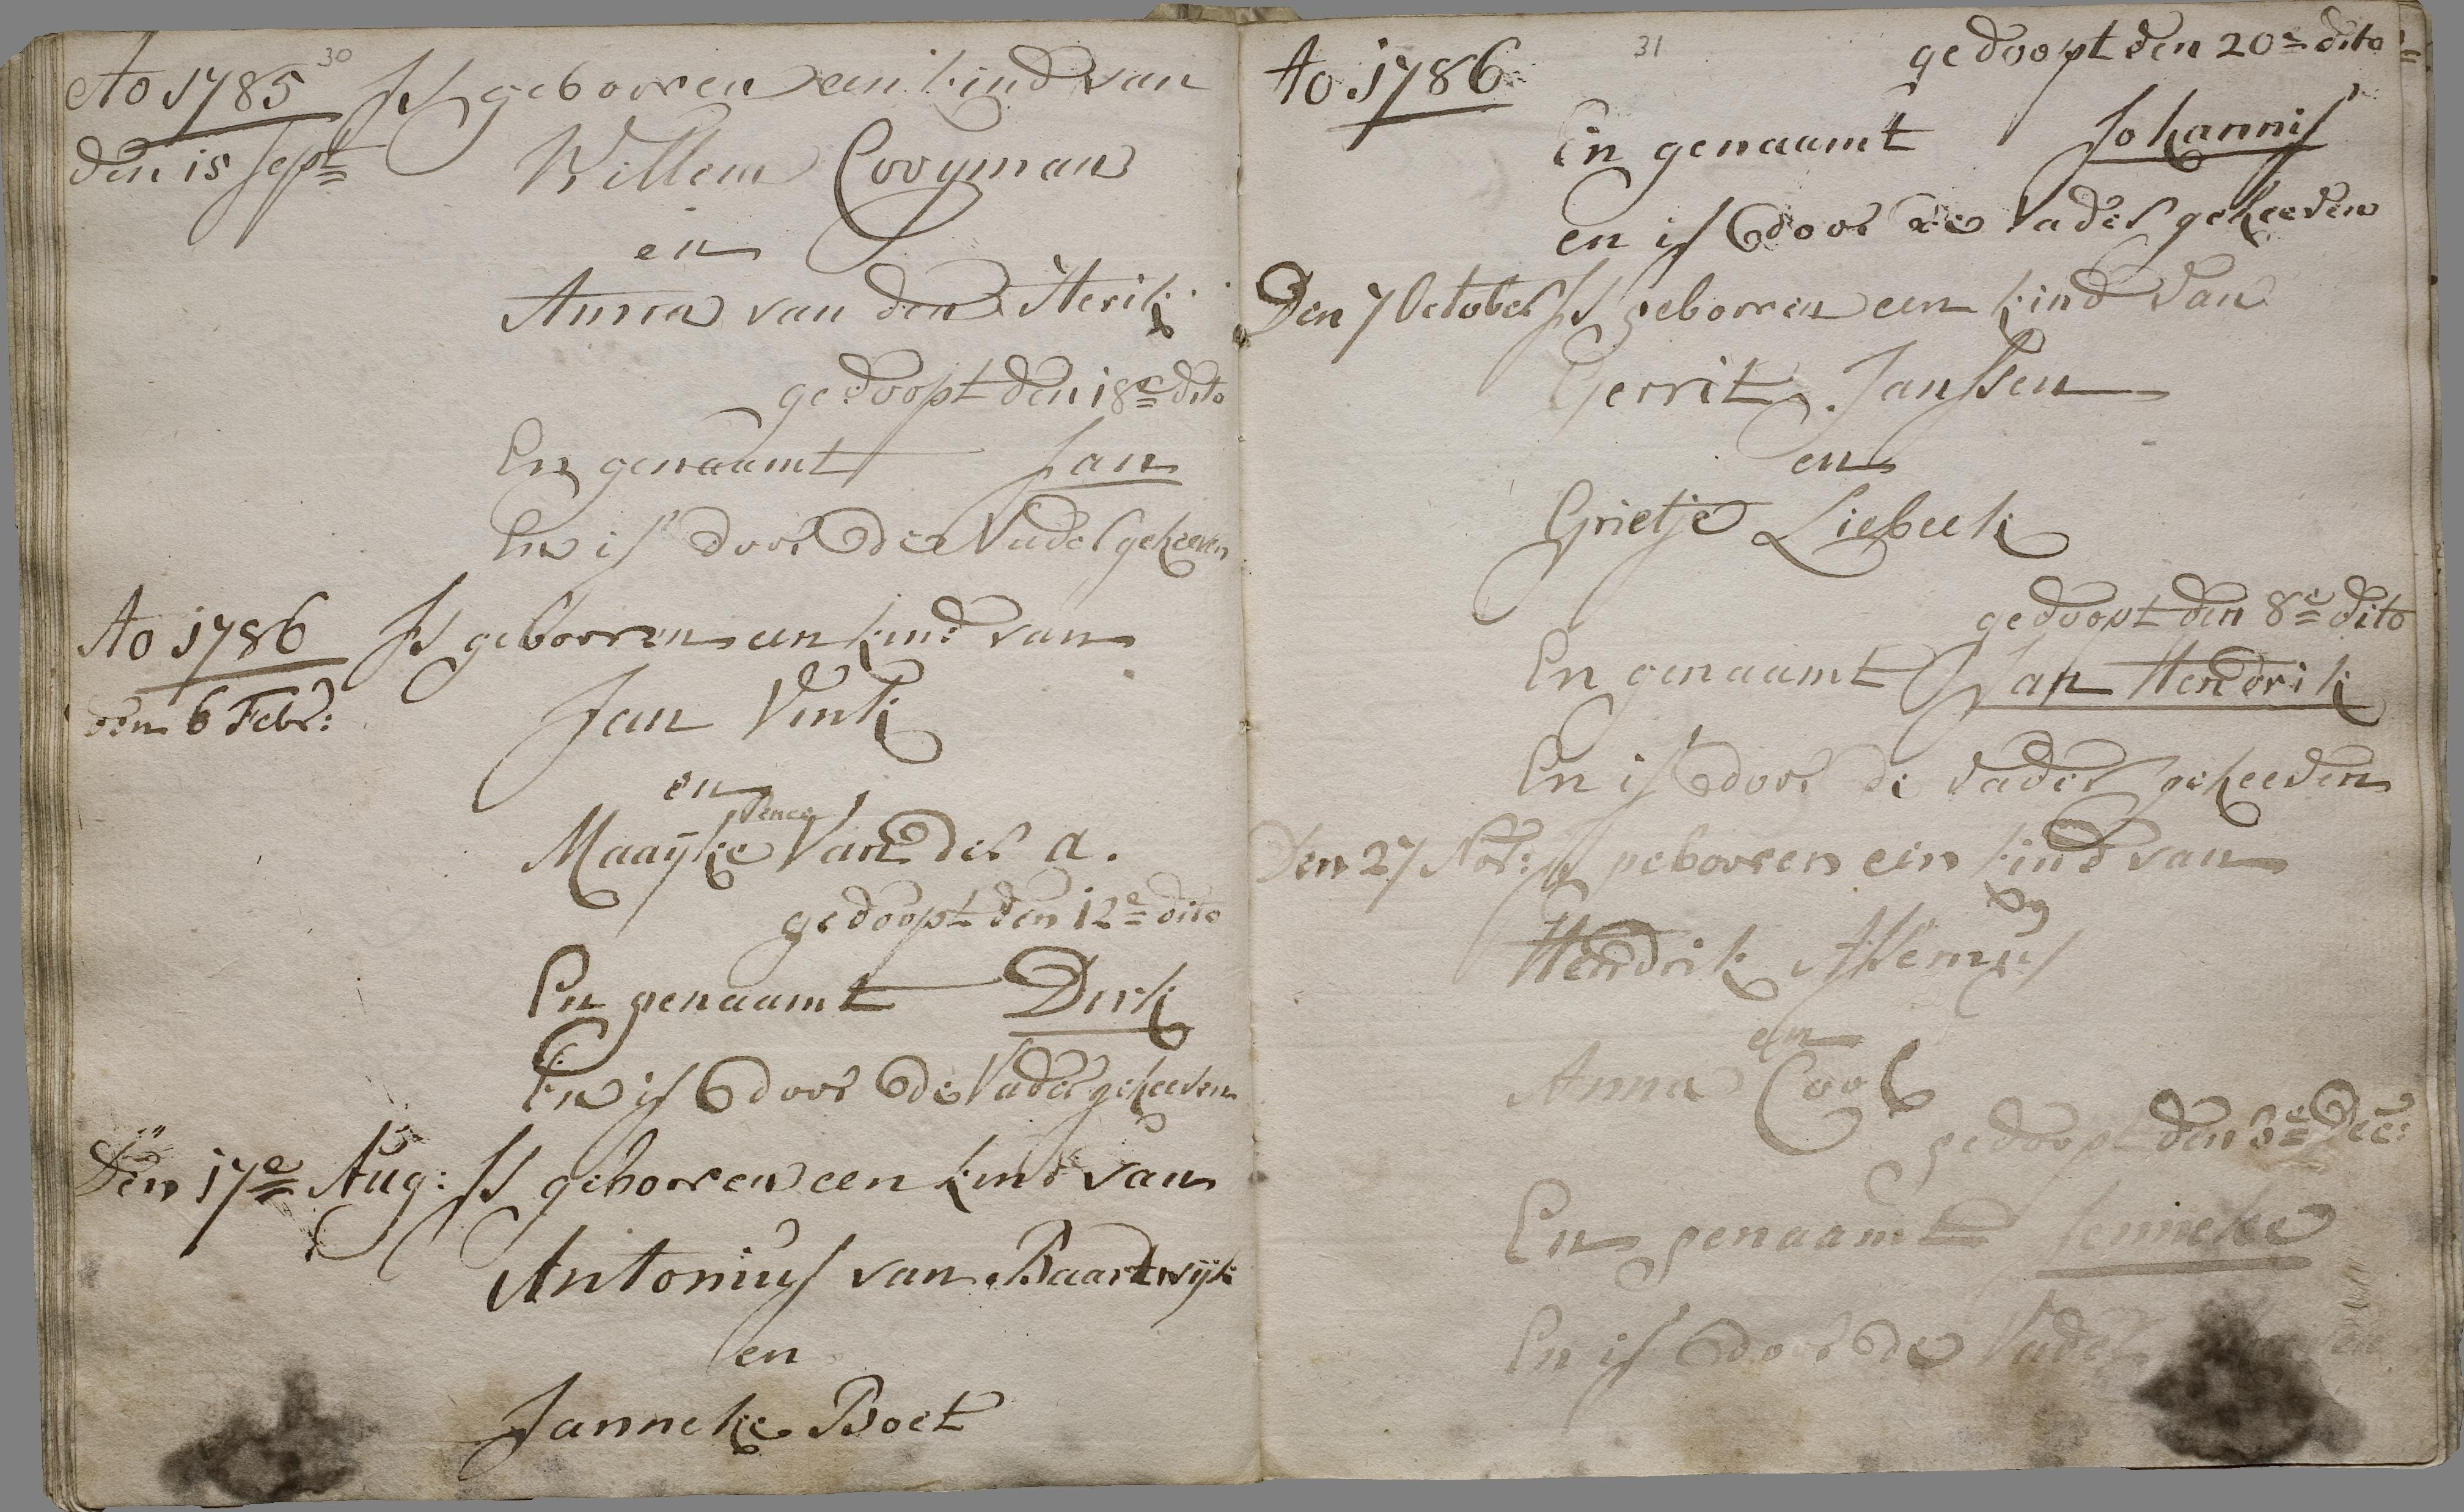 30
Ao 1785 Is geboren een kind van
den 15 Sept Willem Cooyman
en
Anna van den Herik
gedoopt den 18e dito
En genaamt Jan
En is door de Vader geheeven
Ao 1786 Is gebooren een kind van
den 6 Febr: Jan Vink
en
Maayke Van der a.
gedoopt den 12e dito
En genaamt Dirk
En is door de Vader geheeven
Den 17e Aug: Is geboren een kind van
Antonius van Baardwijk
en
Janneke Boet
31
Ao 1786 gedoopt den 20e dito
En genaamt Johannis
en is door de Vader geheeven
Den 7 October Is geboren een kind van
Gerrit Janssen
en
Grietje Liebeek
gedoopt den 8e dito
En genaamt Jan Hendrik
En is door de Vader geheeven
Den 27 Nov: Is gebooren een kind van
Hendrik
en
Anna Cool
gedoopt den 3e Dec:
En genaamt Jenneke
En is door de Vader